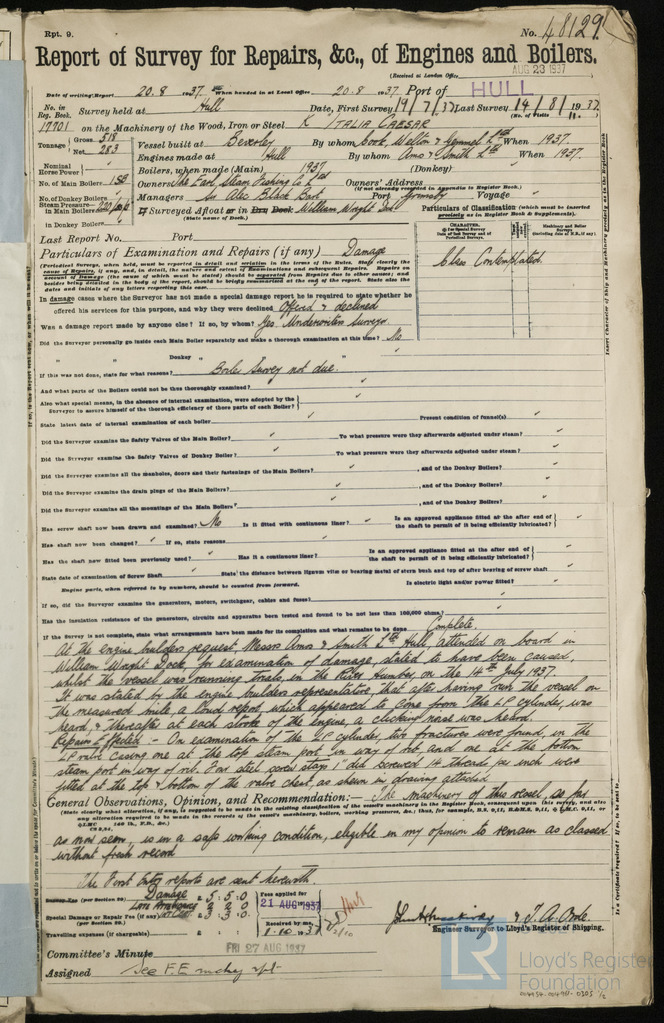 Rpt. 9.
No. 48129.
Report of Survey for Repairs, &c., of Engines and Boilers.
(Received at London Office
AUG 23 1937
Date of writing Report 20.8 1937. When handed in at Local Office 20.8 1937. Port of HULL
No. in Reg. Book. Survey held at Hull Date, First Survey 19/7/37 Last Survey 14/8/1937
(No. of Visits 11.)
17701 on the Machinery of the Wood, Iron or Steel K ITALIA CAESAR
Tonnage Gross 518 Net 283
Vessel built at Beverley By whom Cook, Welton & Gemmell Ltd When 1937.
Engines made at Hull By whom Amos & Smith Ltd When 1937.
Nominal Horse Power
Boilers, when made (Main) 1937 (Donkey)
No. of Main Boilers 1SB Owners The Earl Steam Fishing Co Ltd Owners' Address
(if not already recorded in Appendix to Register Book.)
No. of Donkey Boilers Managers Sir Alec Black Bart Port Grimsby Voyage
Steam Pressure in Main Boilers 220 lbs
in Donkey Boilers
If Surveyed Afloat or in Dry Dock William Wright Dock
(State name of Dock.)
Particulars of Classification (which must be inserted precisely as in Register Book & Supplements).
Last Report No. Port
Particulars of Examination and Repairs (if any) Damage
Class Contemplated.
In damage cases where the Surveyor has not made a special damage report he is required to state whether he
offered his services for this purpose, and why they were declined Offered & declined
Was a damage report made by anyone else? If so, by whom? Yes. Underwriters Surveyor
Did the Surveyor personally go inside each Main Boiler separately and make a thorough examination at this time? No
" " Donkey " " " "
If this was not done, state for what reasons? Boiler Survey not due.
And what parts of the Boilers could not be thoroughly examined? "
Also what special means, in the absence of internal examination, were adopted by the
Surveyor to assure himself of the thorough efficiency of those parts of each Boiler? "
State latest date of internal examination of each boiler " Present condition of funnel(s) "
Did the Surveyor examine the Safety Valves of the Main Boiler? " To what pressure were they afterwards adjusted under steam? "
Did the Surveyor examine the Safety Valves of Donkey Boiler? " To what pressure were they afterwards adjusted under steam? "
Did the Surveyor examine all the manholes, doors and their fastenings of the Main Boilers? " , and of the Donkey Boilers? "
Did the Surveyor examine the drain plugs of the Main Boilers? " , and of the Donkey Boilers? "
Did the Surveyor examine all the mountings of the Main Boilers? " , and of the Donkey Boilers? "
Has screw shaft now been drawn and examined? No Is it fitted with continuous liner? " Is an approved appliance fitted at the after end of the shaft to permit of it being efficiently lubricated? "
Has shaft now been changed? " If so, state reasons "
Has the shaft now fitted been previously used? " Has it a continuous liner? " Is an approved appliance fitted at the after end of the shaft to permit of it being efficiently lubricated?
State date of examination of Screw Shaft " State the distance between lignum vitæ or bearing metal of stern bush and top of after bearing of screw shaft "
Engine parts, when referred to by numbers, should be counted from forward. Is electric light and/or power fitted? "
If so, did the Surveyor examine the generators, motors, switchgear, cables and fuses? "
Has the insulation resistance of the generators, circuits and apparatus been tested and found to be not less than 100,000 ohms? "
If the Survey is not complete, state what arrangements have been made for its completion and what remains to be done Complete.
At the engine builders request, Messrs Amos & Smith Ltd Hull, attended on board in
William Wright Dock, for examination of damage, stated to have been caused,
whilst the vessel was running trials, in the River Humber, on the 14th July 1937.
It was stated by the engine builders representative, that after having run the vessel on
the measured mile, a loud report, which appeared to come from the LP cylinder, was
heard, & thereafter at each stroke of the engine, a clicking noise was heard.
Repairs Effected:- On examination of the LP cylinder, two fractures were found, in the
LP valve casing one at the top steam port in way of rib, and one at the bottom
steam port in way of rib. Four steel cored stays 1" dia screwed 14 threads per inch were
fitted at the top & bottom of the valve chest, as shewn in drawing attached
General Observations, Opinion, and Recommendation:- The machinery of this vessel, so far
as now seen, is in a safe working condition, eligible in my opinion to remain as classed
without fresh record
The First Entry reports are sent herewith
Survey Fee (per Section 29) Damage £ 5 : 5 : 0
Special Damage or Repair Fee (if any) (per Section 29.) £ 3 : 3 : 0
Travelling expenses (if chargeable) £ : :
Fees applied for
21 AUG 1937
Received by me,
1-10-1937
Engineer Surveyor to Lloyd's Register of Shipping.
Committee's Minute FRI 27 AUG 1937
Assigned See F.E. mchy rpt
LR
Lloyd's Register
Foundation